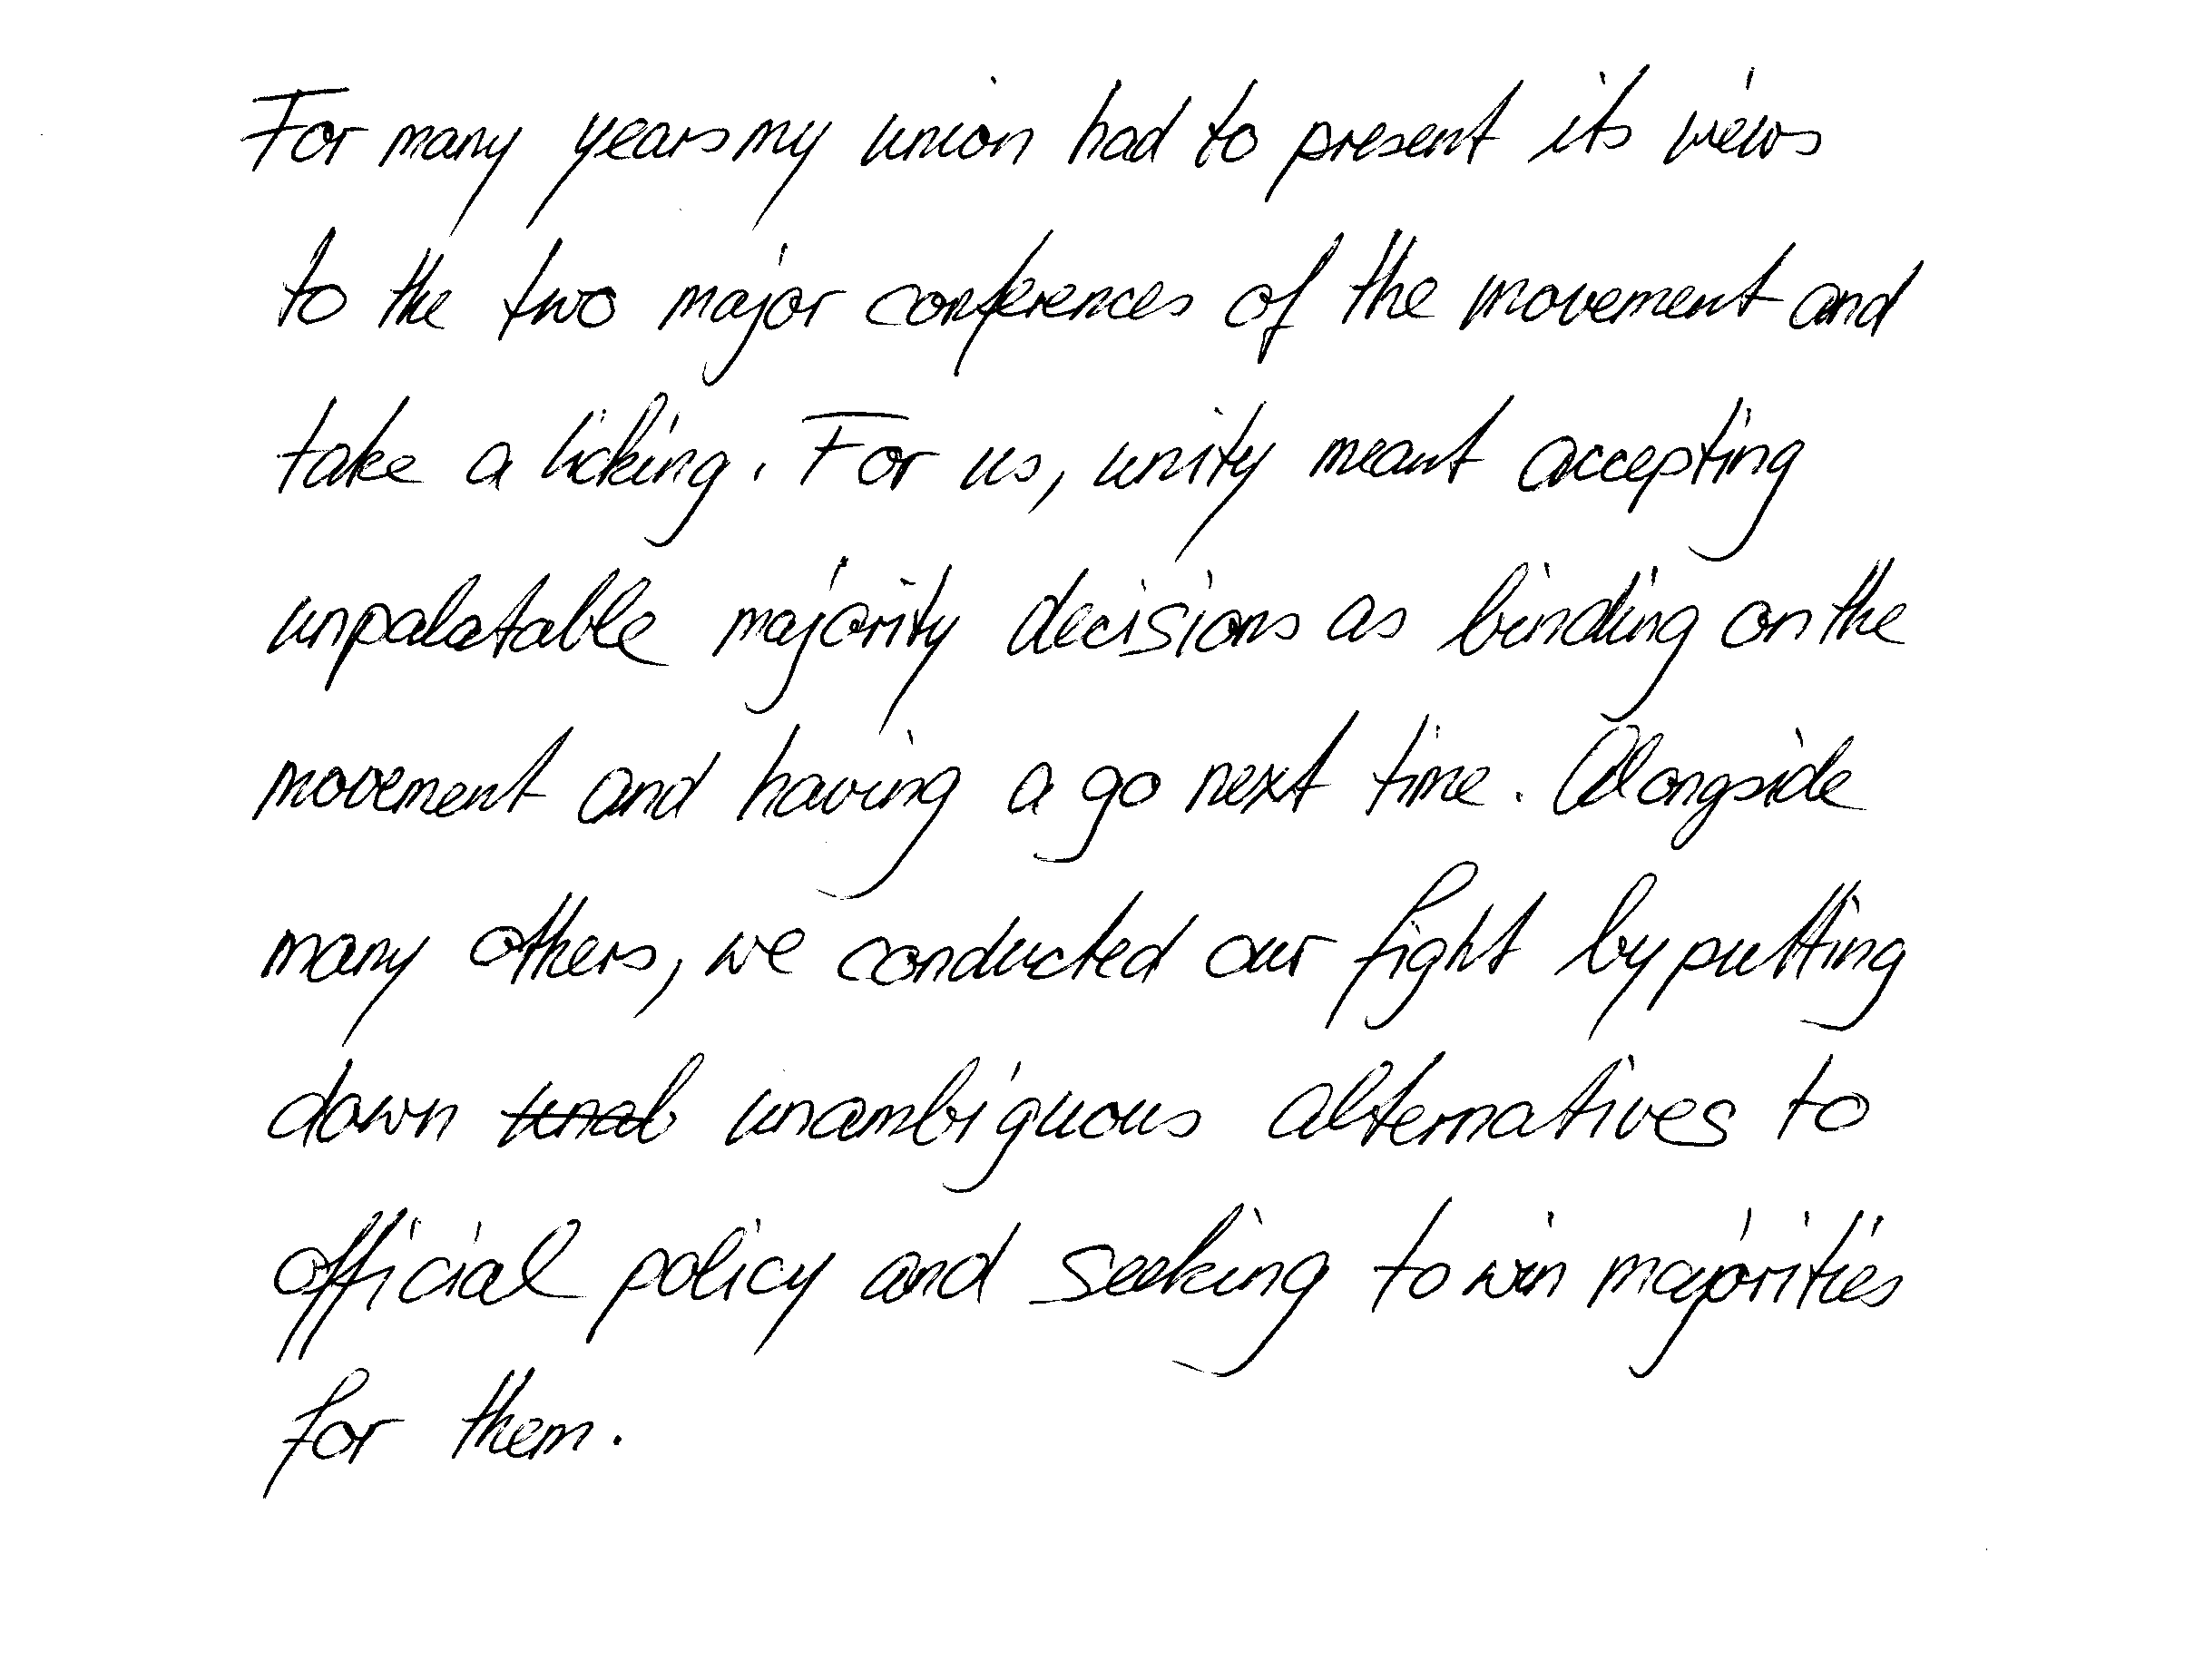 For many years my union had to present its views
to the two major conferences of the movement and
take a licking. For us, unity meant accepting
unpalatable majority decisions as binding on the
movement and having a go next time. Alongside
many others, we conducted our fight by putting
down unab unambiguous alternatives to
official policy and seeking to win majorities
for them.